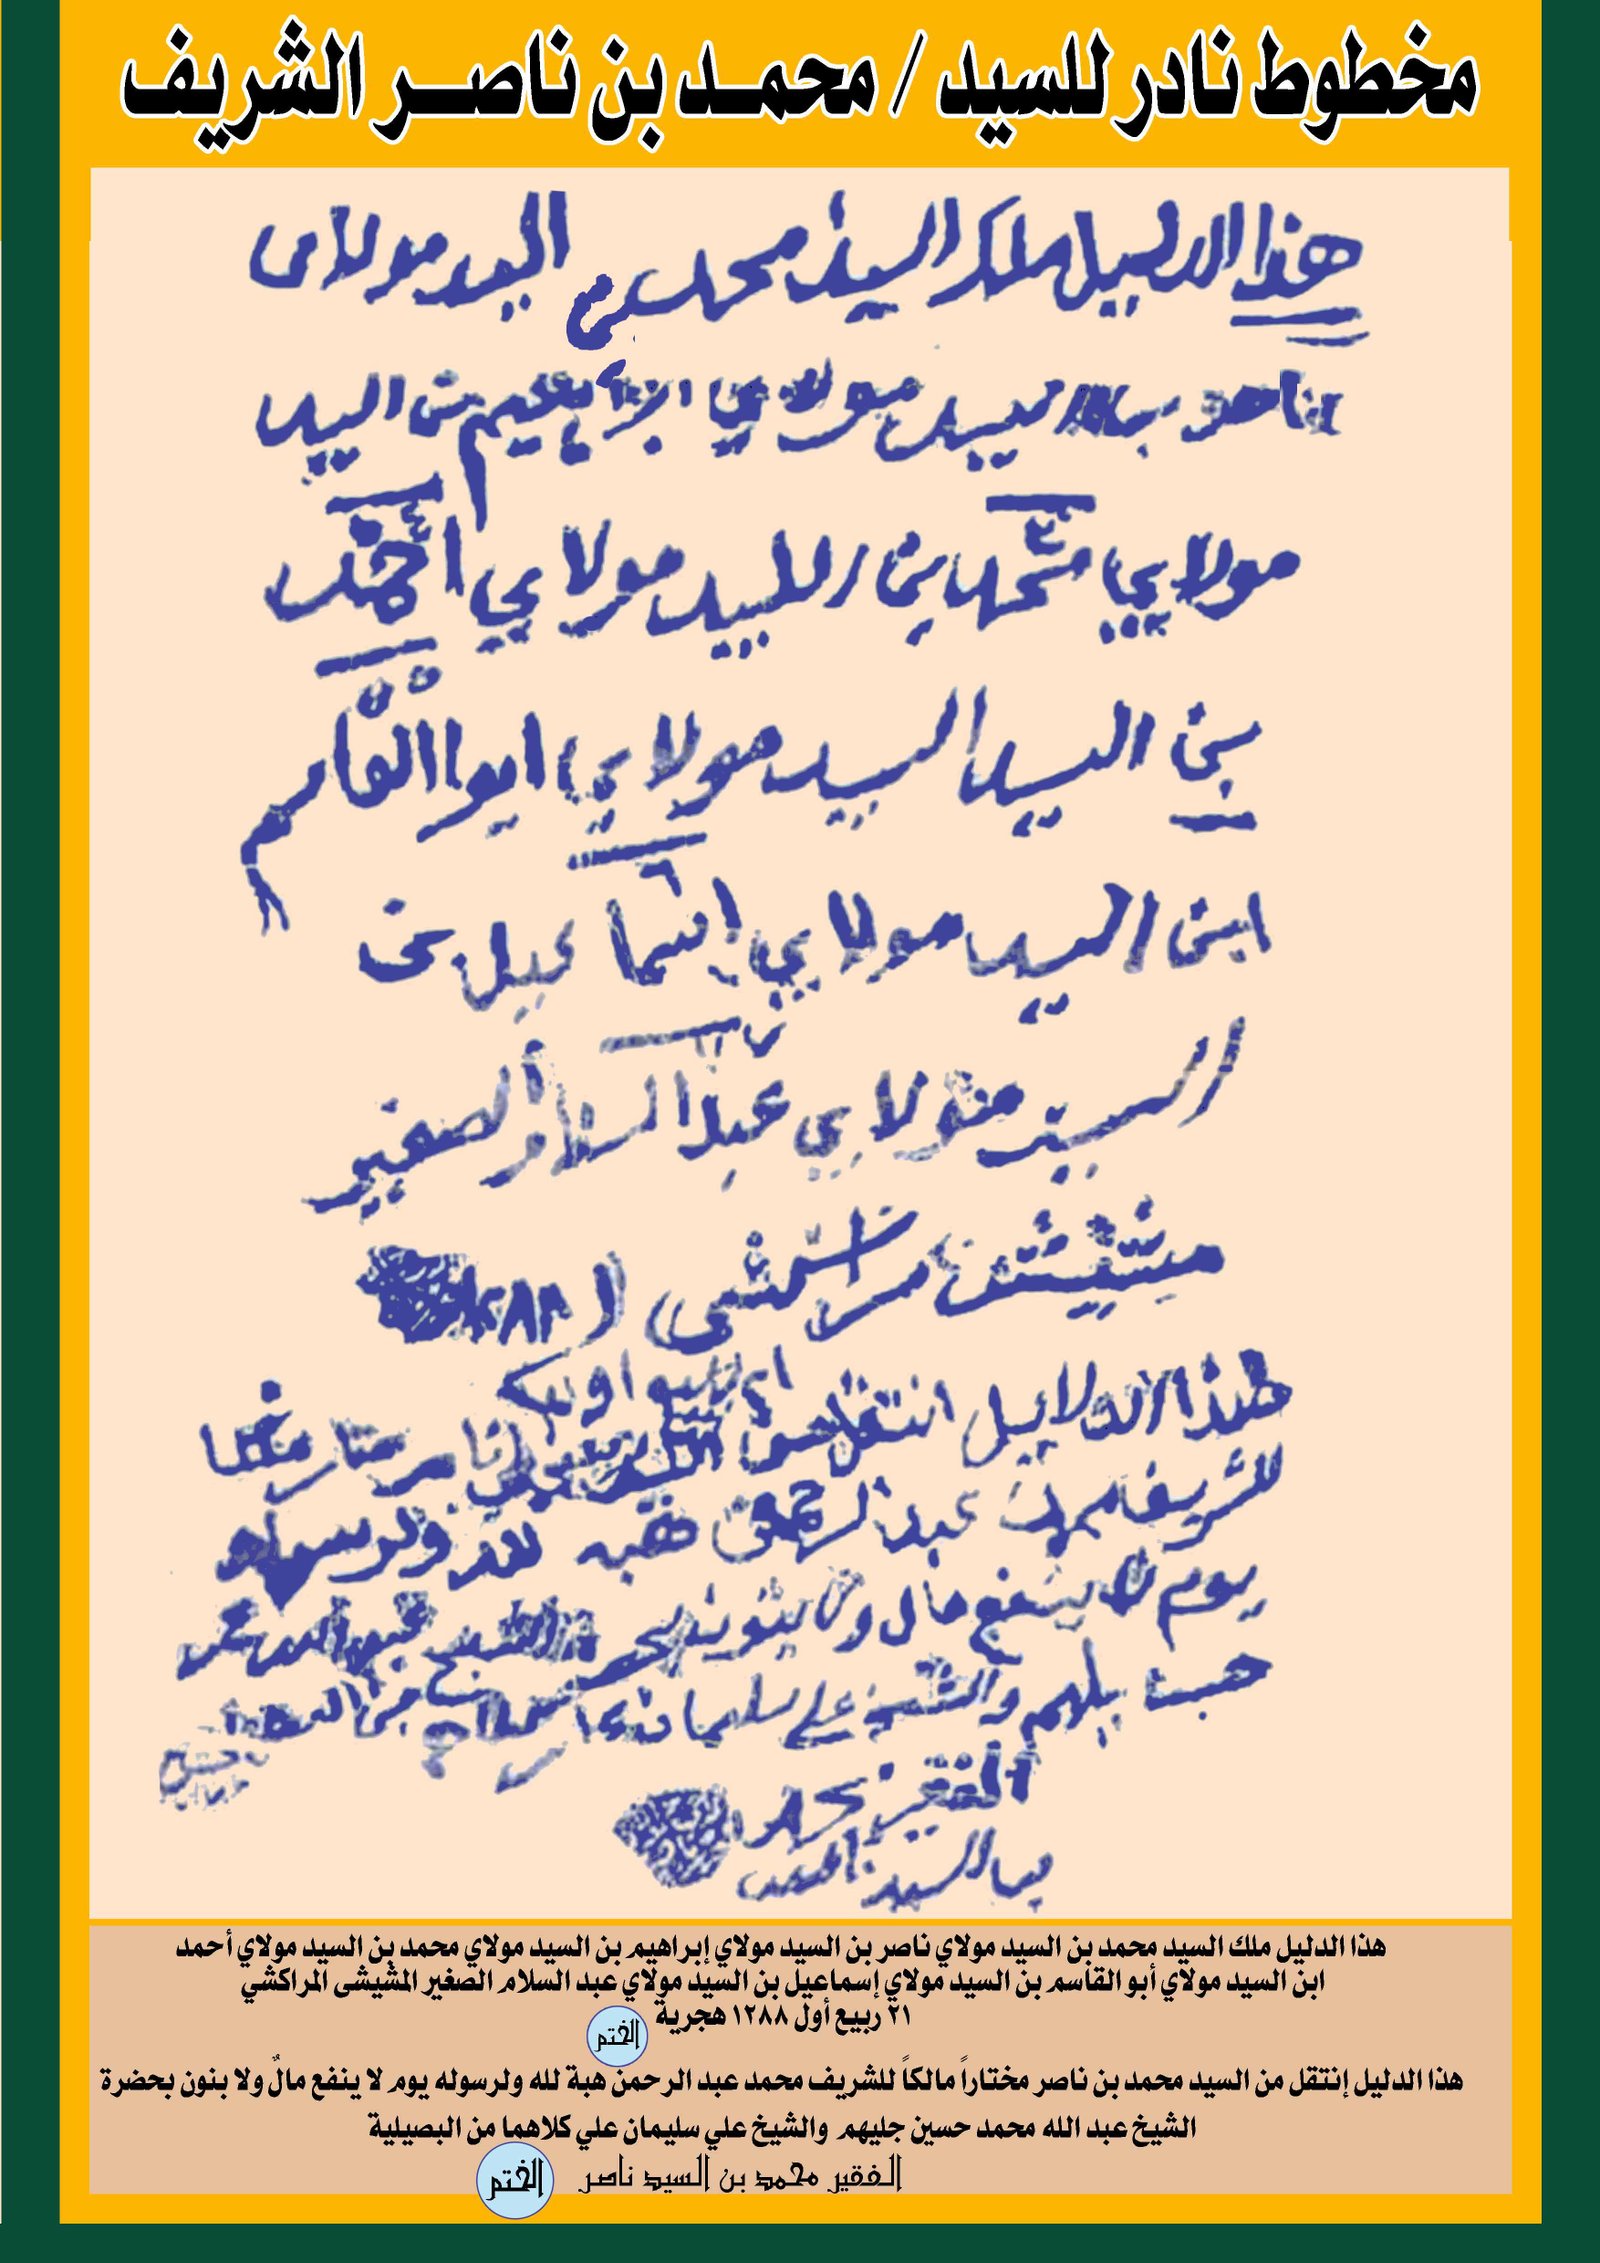 مخطوط نادر للسيد / محمد بن ناصر الشريف
هذا الدليل ملك السيد محمد بن السيد مولاى
ناصر بن السيد مولاي ابراهيم بن السيد
مولاي محمد بن السيد مولاي أحمد
بن السيد السيد مولاي ابوا القاسم
ابن السيد مولاي إسماعيل بن
السيد مولاي عبد السلام الصغير
مشيشى مراكشى
١٢٨٨
هذا الدلايل انتقل من
للشريف محمد عبد الرحمن هبه لله ولرسوله
يوم لا ينفع مال ولا بنون
والشيخ على سليمان
الفقير محمد
بن السيد ناصر
هذا الدليل ملك السيد محمد بن السيد مولاي ناصر بن السيد مولاي إبراهيم بن السيد مولاي محمد بن السيد مولاي أحمد
ابن السيد مولاي أبو القاسم بن السيد مولاي إسماعيل بن السيد مولاي عبد السلام الصغير المشيشى المراكشي
٢١ ربيع أول ١٢٨٨ هجرية
الختم
هذا الدليل إنتقل من السيد محمد بن ناصر مختاراً مالكاً للشريف محمد عبد الرحمن هبة لله ولرسوله يوم لا ينفع مالٌ ولا بنون بحضرة
الشيخ عبد الله محمد حسين جليهم والشيخ علي سليمان علي كلاهما من البصيلية
الفقير محمد بن السيد ناصر
الختم